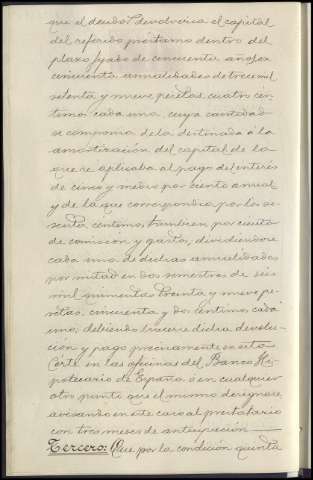 que el deudor devolveria el capital
del referido préstamo dentro del
plazo fijado de cincuenta años en
cincuenta anualidades de trece mil
setenta y nueve pesetas, cuatro cén-
timos cada una, cuya cantidad
se componia de la destinada á la
amortización del capital de la
que se aplicaba al pago del interés
de cinco y medio por ciento anual
y de la que correspondia por los se-
senta céntimos, tambien por ciento
de comisión y gastos, dividiendose
cada una de dichas anualidades
por mitad en dos semestres de seis
mil quinientas treinta y nueve pe-
setas, cincuenta y dos céntimos cada
uno, debiendo hacerse dicha devolu-
ción y pago precisamente en esta
Córte en las oficinas del Banco Hi-
potecario de España ó en cualquier
otro punto que el mismo designare,
avisando en este caso al prestatario
con tres meses de anticipación
Tercero: Que por la condición quinta